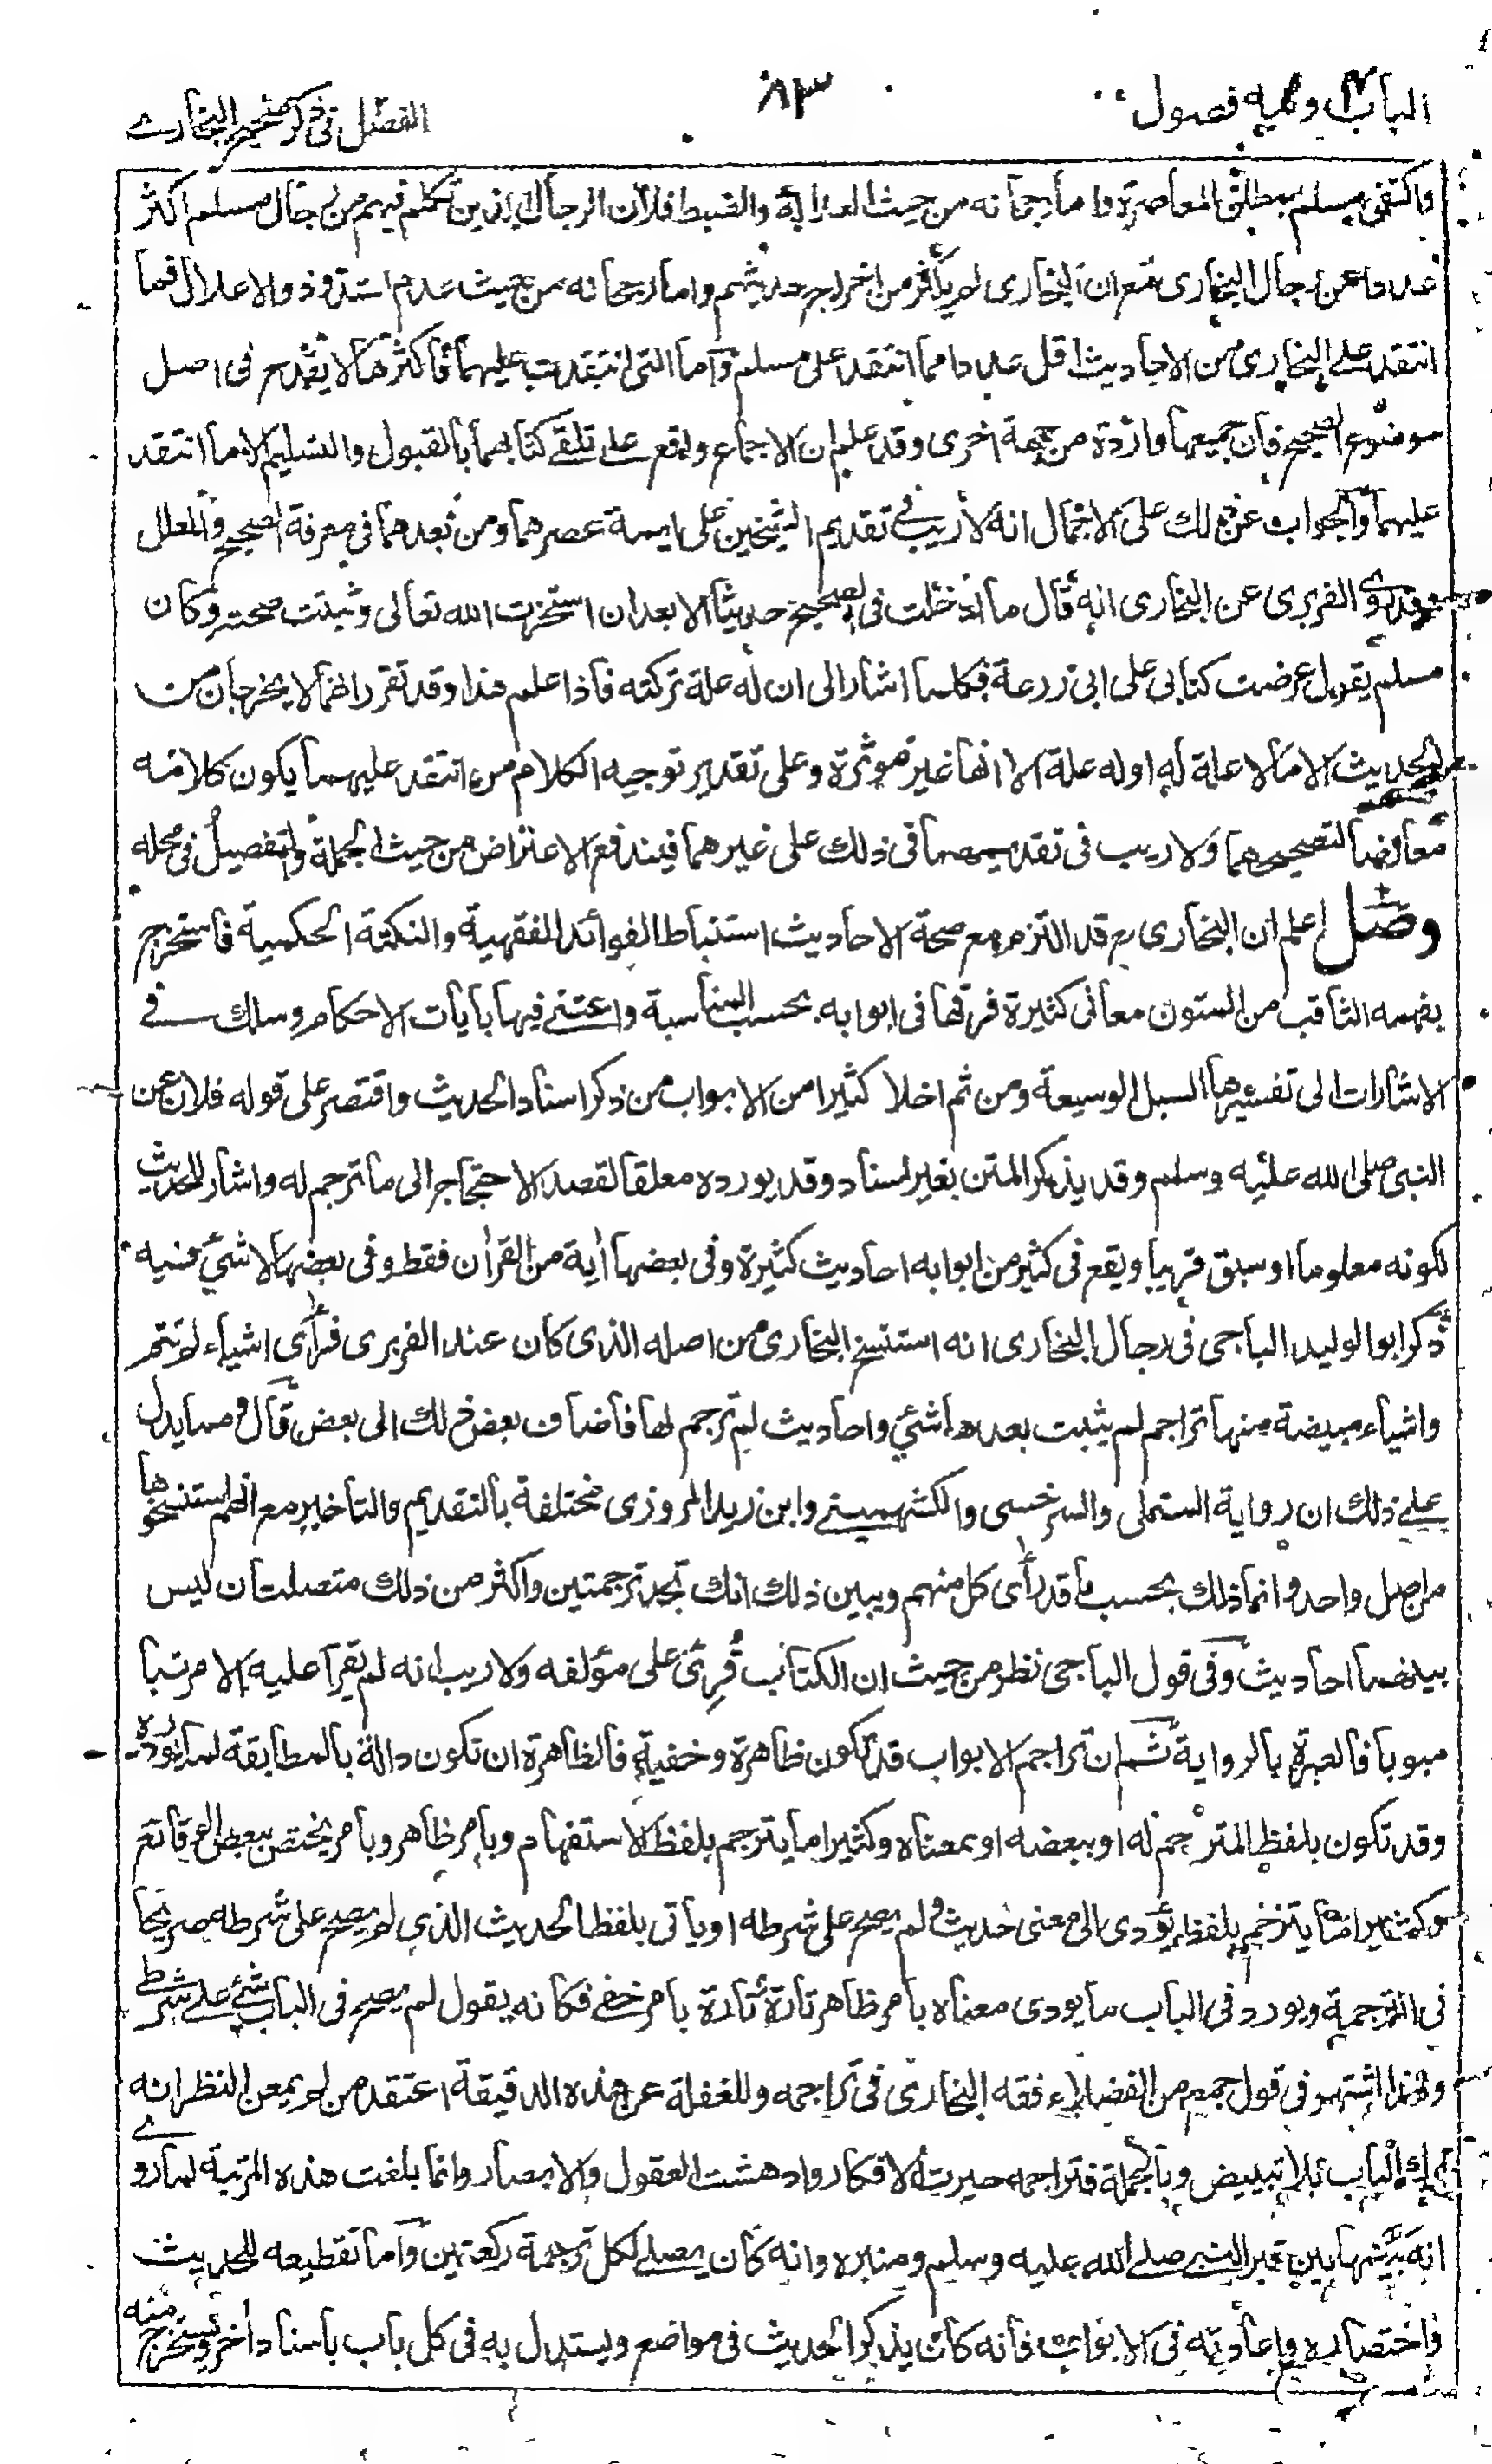 الباب وفيه فصول
٨٣
الفصل في ذكر صحيح البخاري
واكتفى مسلم بمطلق المعاصرة واما رجحانه من حيث العدالة والضبط فلان الرجال الذين تكلم فيهم من رجال مسلم اكثر
عددا من رجال البخاري مع ان البخاري لم يكثر من اخراج حديثهم واما رجحانه من حيث عدم الشذوذ والاعلال فما
انتقد على البخاري من الاحاديث اقل عددا مما انتقد على مسلم واما التي انتقدت عليهما فاكثرها لا يقدح في اصل
موضوع الصحيح فان جميعها واردة من جهة اخرى وقد علم ان الاجماع واقع على تلقي كتابهما بالقبول والتسليم الا ما انتقد
عليهما والجواب عن ذلك على الاجمال انه لا ريب في تقديم الشيخين على ايمة عصرهما ومن بعدهما في معرفة الصحيح والمعلل
وقد روى الفربري عن البخاري انه قال ما ادخلت في الصحيح حديثا الا بعد ان استخرت الله تعالى وثبتت صحته وكان
مسلم يقول عرضت كتابي على ابي زرعة فكلما اشار الى ان له علة تركته فاذا علم هذا وقد تقرر انهما لا يخرجان من
الحديث الا ما لا علة له او له علة الا انها غير مؤثرة وعلى تقدير توجيه الكلام من انتقد عليهما يكون كلامه
معارضا لتصحيحهما ولا ريب في تقديمهما في ذلك على غيرهما فيندفع الاعتراض من حيث الجملة والتفصيل في محله
وصل اعلم ان البخاري رح قد التزم مع صحة الاحاديث استنباط الفوائد الفقهية والنكتة الحكمية فاستخرج
بفهمه الثاقب من المتون معاني كثيرة فرقها في ابوابه بحسب المناسبة واعتنى فيها بايات الاحكام وسلك في
الاشارات الى تفسيرها السبل الوسيعة ومن ثم اخلا كثيرا من الابواب من ذكر اسناد الحديث واقتصر على قوله فلان عن
النبي صلى الله عليه وسلم وقد يذكر المتن بغير اسناد وقد يورده معلقا لقصد الاحتجاج الى ما ترجم له واشار للحديث
لكونه معلوما او سبق قريبا ويقع في كثير من ابوابه احاديث كثيرة وفي بعضها اية من القرأن فقط وفي بعضها لا شيء فيه
ذكر ابو الوليد الباجي في رجال البخاري انه استنسخ البخاري من اصله الذي كان عند الفربري فرأى اشياء لم تتم
واشياء مبيضة منها تراجم لم يثبت بعدها شيء واحاديث لم يترجم لها فاضاف بعض ذلك الى بعض قال ومما يدل
على ذلك ان رواية المستملي والسرخسي والكشهميني وابن زيد المروزي مختلفة بالتقديم والتأخير مع انهم استنسخوها
من اصل واحد وانما ذلك بحسب ما قد رأى كل منهم ويبين ذلك انك تجد ترجمتين واكثر من ذلك متصلتان ليس
بينهما احاديث وفي قول الباجي نظر من حيث ان الكتاب قرئ على مؤلفه ولا ريب انه لم يقرأ عليه الا مرتبا
مبوبا فالعبرة بالرواية ثم ان تراجم الابواب قد تكون ظاهرة وخفية فالظاهرة ان تكون دالة بالمطابقة لما يورده
وقد تكون بلفظ المترجم له او ببعضه او بمعناه وكثيرا ما يترجم بلفظ الاستفهام وبامر ظاهر وبامر يختص ببعض الوقائع
وكثيرا ما يترجم بلفظ يؤدي الى معنى حديث لم يصح على شرطه او ياتي بلفظ الحديث الذي لم يصح على شرطه صريحا
في الترجمة ويورد في الباب ما يودى معناه بامر ظاهر تارة وتارة بامر خفي فكانه يقول لم يصح في الباب شئ على شرطي
ولهذا اشتهر في قول جمع من الفضلاء فقه البخاري في تراجمه وللغفلة عن هذه الدقيقة اعتقد من لم يمعن النظر انه
ترك الباب بلا تبييض وبالجملة فتراجمه حيرت الافكار وادهشت العقول والابصار وانما بلغت هذه المرتبة لما روي
انه بيضها بين قبر النبي صلى الله عليه وسلم ومنبره وانه كان يصلي لكل ترجمة ركعتين واما تقطيعه للحديث
واختصاره واعادته في الابواب فانه كان يذكر الحديث في مواضع ويستدل به في كل باب باسناد اخر ويستخرج منه